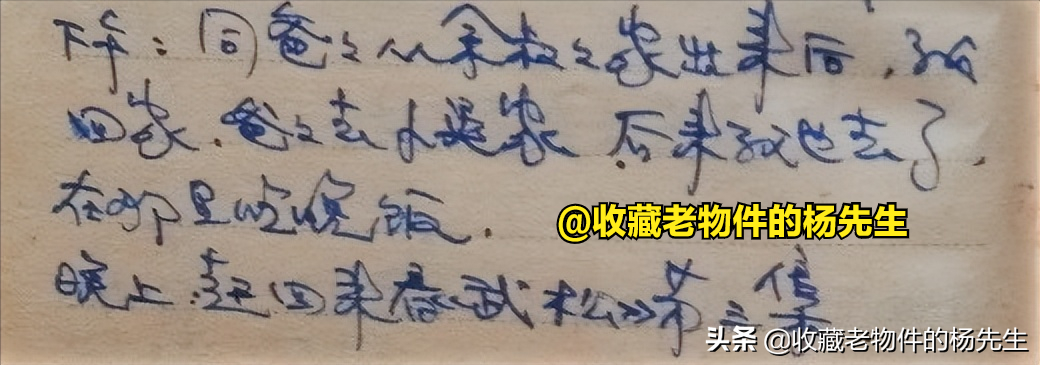 下午:同爸爸从余叔叔家出来后,我
回家.爸爸去小延家.后来我也去了,
在那里吃晚饭.
@收藏老物件的杨先生
晚上赶回来看《武松》第二集
头条 @收藏老物件的杨先生